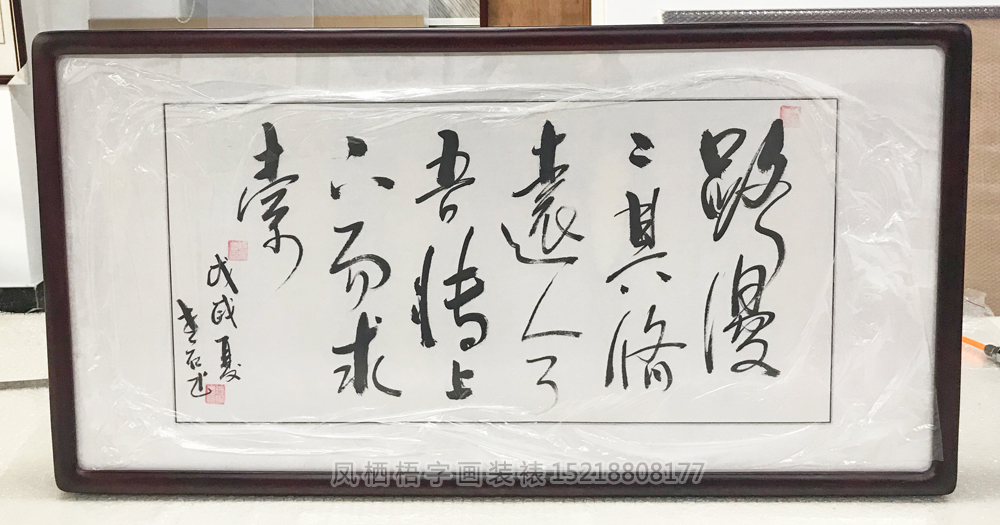 路漫
〻其脩
遠兮
吾將上
下而求
索
戊戌夏
凤栖梧字画装裱15218808177